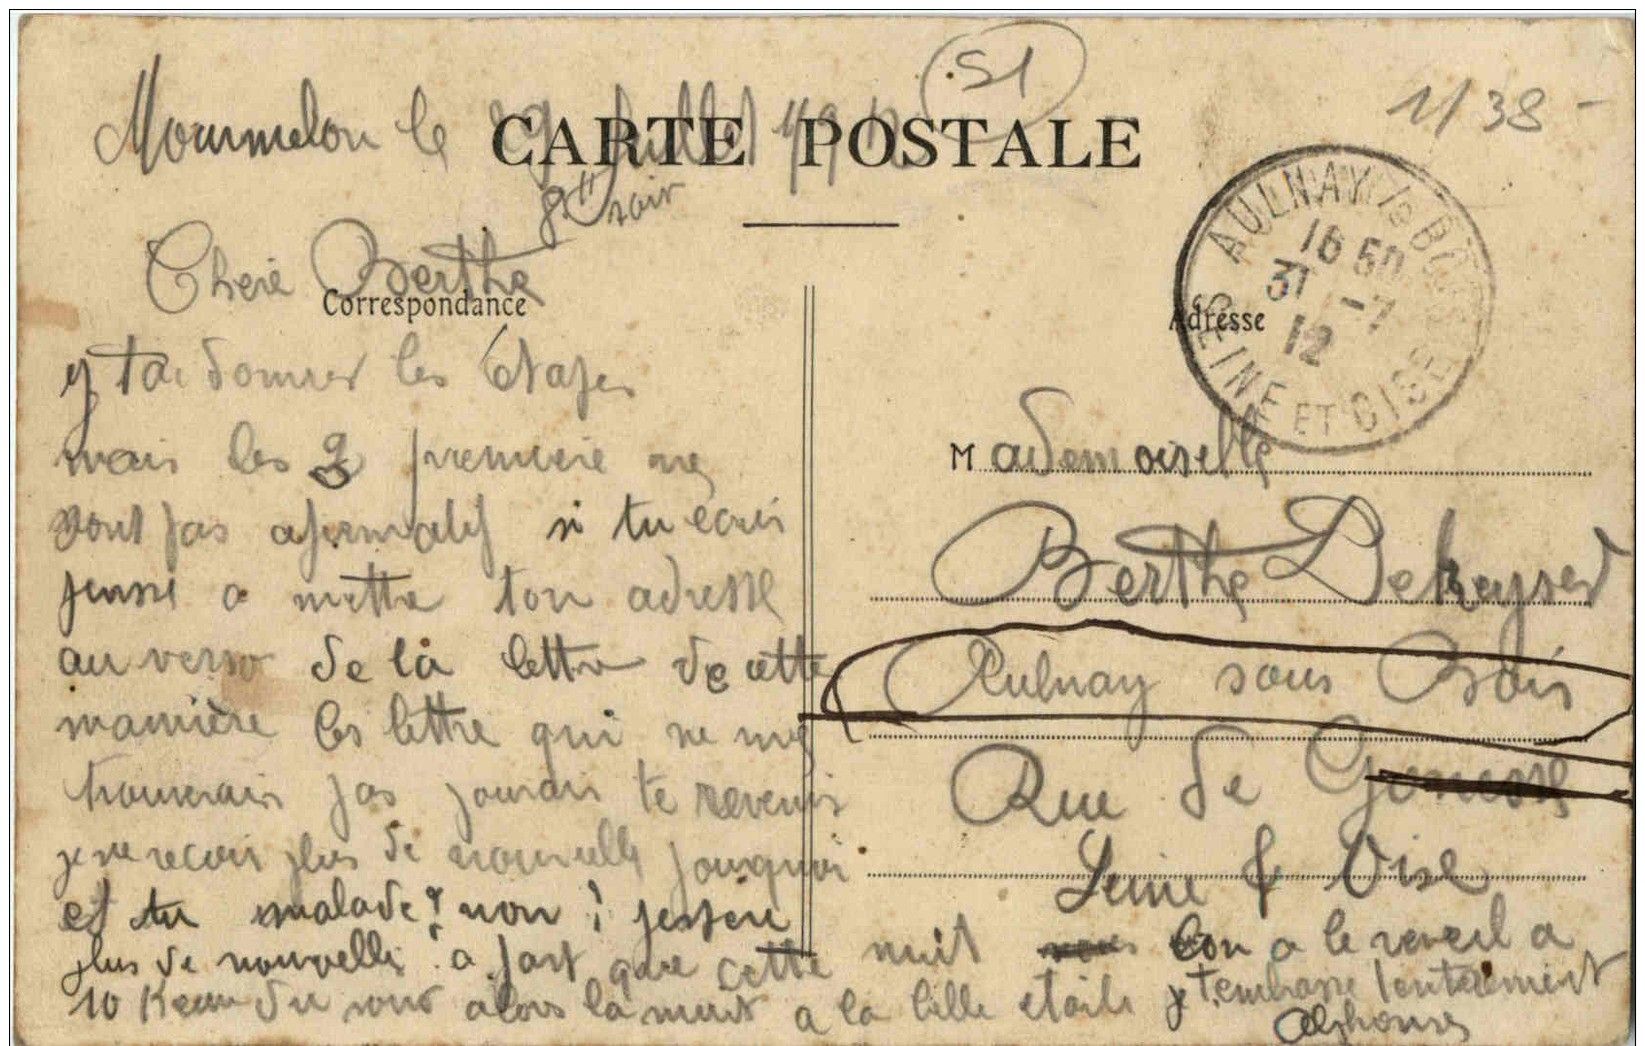 51
11 38 -
Mourmelon le 29 Juillet 1912
CARTE POSTALE
8H soir
AULNAY-s-BOIS
16 50
31 -7
12
SEINE ET OISE
Cherie Berthe
Correspondance
Adresse
j tai donner les Etapes
mais les 2 premiere ne
sont pas afirmatif si tu ecris
pense a mettre ton adresse
au verso de la lettre de cette
manière les lettre qui ne me
trouverais pas pourais te revenir
je ne recois plus de nouvelle pourquoi
et tu malade? non!
plus de nouvelle a part que cette nuit lon a le reveil a
10 du soir alors la nuit a la belle etoile je t'embrasse tentrement
Alphonse
Mademoiselle
Berthe Dekeyser
Aulnay sous Bois
Rue de Gonesse
Seine & Oise